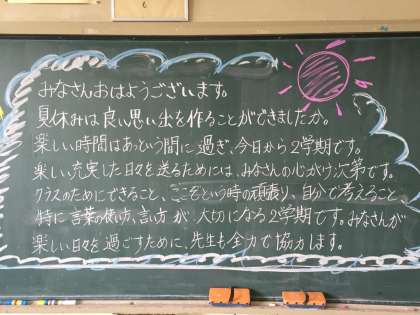 みなさんおはようございます。
夏休みは良い思い出を作ることができましたか。
楽しい時間はあっという間に過ぎ、今日から2学期です。
楽しい充実した日々を送るためには、みなさんの心がけ次第です。
クラスのためにできること、ここぞという時の頑張り、自分で考えること
特に言葉の使い方、言い方が大切になる2学期です。みなさんが
楽しい日々を過ごすために、先生も全力で協力します。